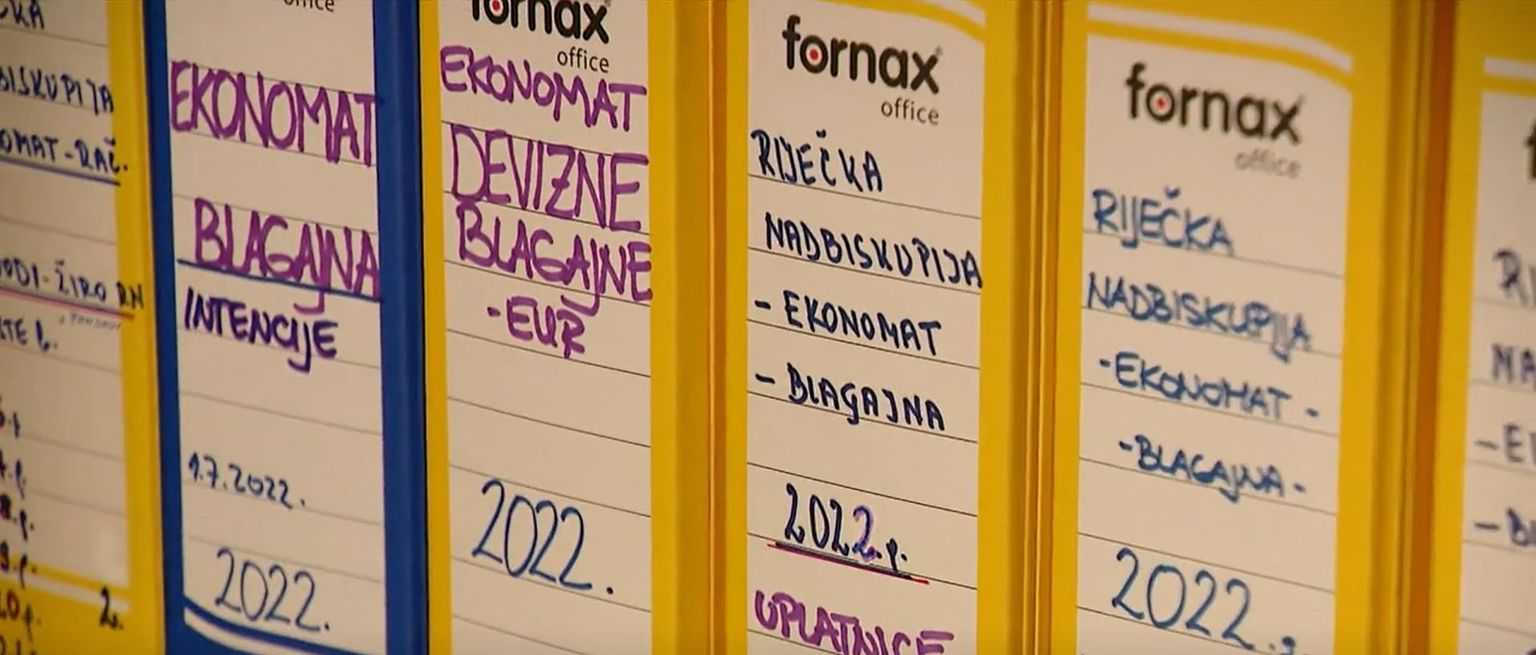 BISKUPIJA
ŽIRO RN
office
EKONOMAT
BLAGAJNA
INTENCIJE
1.7.2022.
2022.
fornax
office
EKONOMAT
DEVIZNE
BLAGAJNE
-EUR
2022.
fornax
office
RIJEČKA
NADBISKUPIJA
- EKONOMAT
- BLAGAJNA
2022.g.
UPLATNICE
fornax
office
RIJEČKA
NADBISKUPIJA
-EKONOMAT -
-BLAGAJNA-
2022.